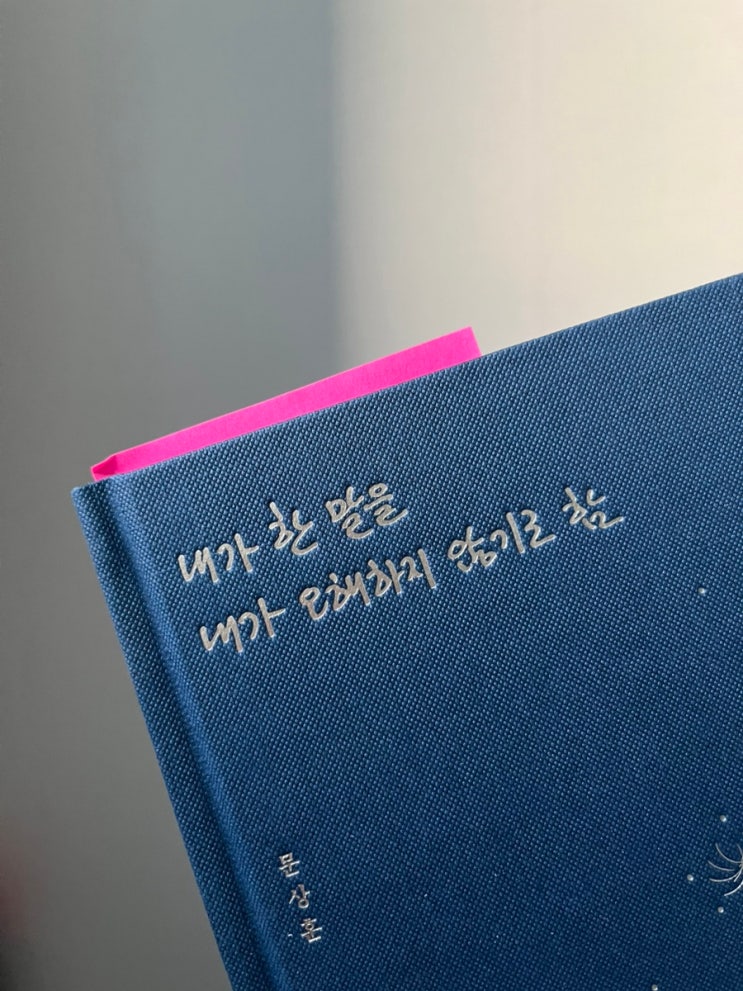 내가 한 말을
내가 오해하지 않기로 함
문상훈